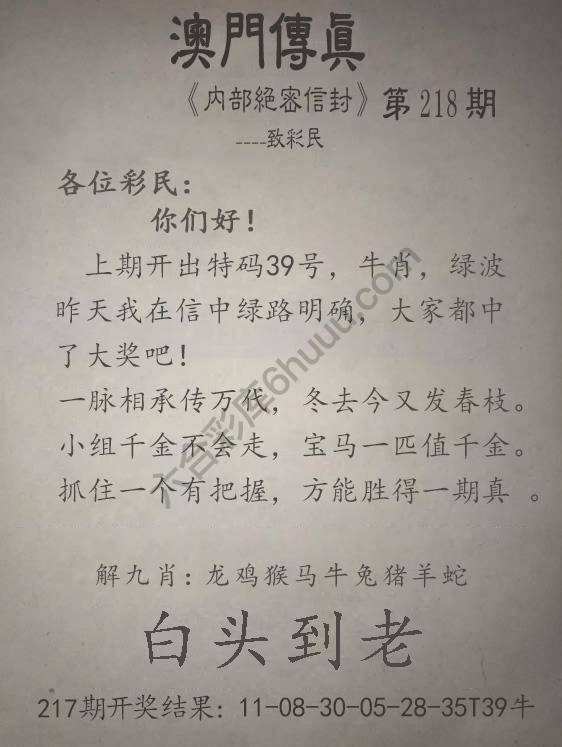 澳門傳真
《内部絕密信封》第218期
----致彩民
各位彩民：
你们好！
上期开出特码39号，牛肖，绿波
昨天我在信中绿路明确，大家都中
了大奖吧！
一脉相承传万代，冬去今又发春枝。
小组千金不会走，宝马一匹值千金。
抓住一个有把握，方能胜得一期真 。
六合彩库6huuu.com
解九肖：龙鸡猴马牛兔猪羊蛇
白头到老
217期开奖结果：11-08-30-05-28-35T39牛